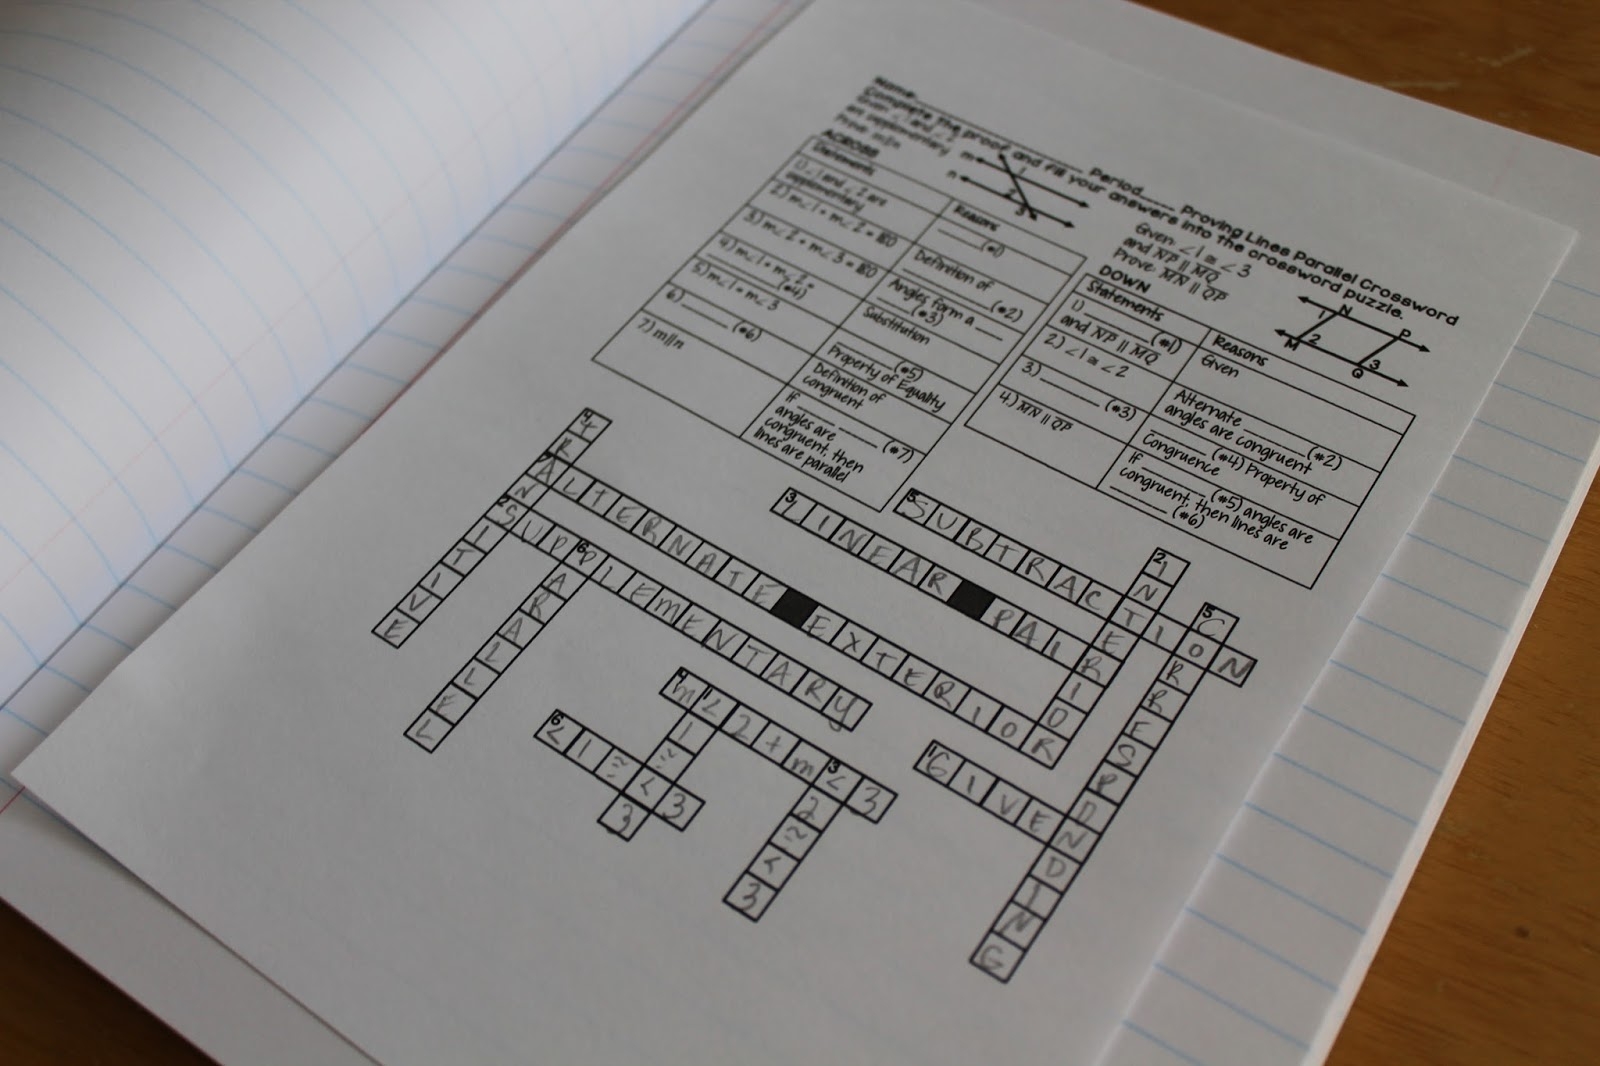 Name______ Period______ Proving Lines Parallel Crossword
Complete the proof and fill your answers into the crossword puzzle.
Given: ∠1 and ∠2
are supplementary
Prove: m||n
m
n
1
2
3
ACROSS
Statements
Reasons
1) ∠1 and ∠2 are
supplementary
______(#1)
2) m∠1 + m∠2 = 180
Definition of
______(#2)
3) m∠2 + m∠3 = 180
Angles form a ______
______(#3)
4) m∠1 + m∠2 =
______(#4)
Substitution
5) m∠1 = m∠3
______(#5)
Property of Equality
6) ______(#6)
Definition of
congruent
7) m||n
If ______(#7)
angles are
congruent, then
lines are parallel
Given: ∠1 ≅ ∠3
and NP || MQ
Prove: MN || QP
N
P
M
Q
1
2
3
DOWN
Statements
Reasons
1) ______(#1)
and NP || MQ
Given
2) ∠1 ≅ ∠2
Alternate ______(#2)
angles are congruent
3) ______(#3)
______(#4) Property of
Congruence
4) MN || QP
If ______(#5) angles are
congruent, then lines are
______(#6)
4 TRANSITIVE
7 ALTERNATE EXTERIOR
2 SUPPLEMENTARY
6 PARALLEL
3 LINEAR PAIR
5 SUBTRACTION
2 INTERIOR
5 CORRESPONDING
4 m∠2+m∠3
1 ∠1≅∠3
6 ∠1≅∠3
3 ∠2≅∠3
1 GIVEN